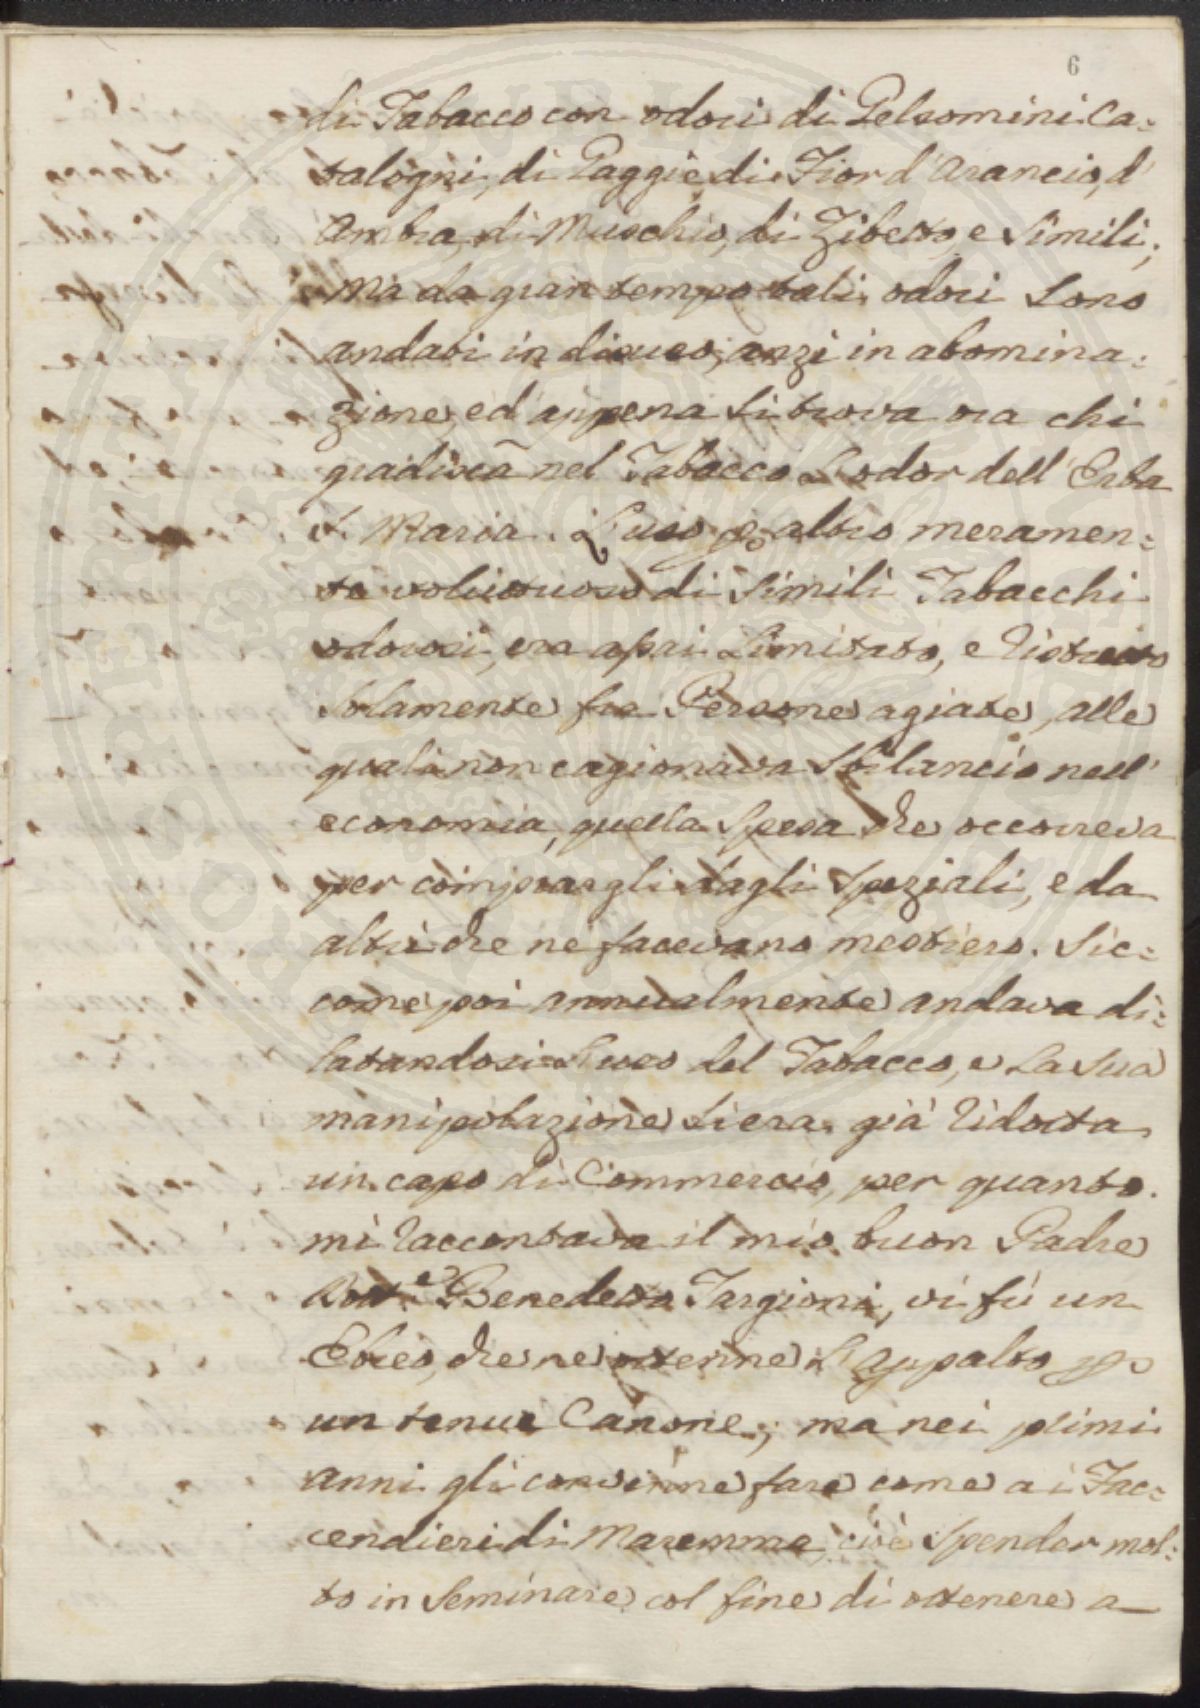 6
di Tabacco con odori di Gelsomini Ca=
talogni, di Gaggie, di Fior d'Arancio, d'
Ambra, di Muschio, di Zibetto, e Simili;
ma da gran tempo tali odori Sono
andati in disuso, anzi in abomina=
zione, ed appena Si trova ora chi
gradisca nel Tabacco L'odor dell'Erba
S. Maria. L'uso p altro meramen=
te voluttuoso di Simili Tabacchi
odorosi, era assai Limitato, e Ristretto
Solamente fra Persone agiate, alle
quali non cagionava Sbilancio nell'
economia, quella Spesa che occorreva
per comprargli dagli Speziali, e da
altri che ne facevano mestiero. Sic=
come poi annualmente andava di=
latandosi L'uso del Tabacco, e La Sua
manipolazione Si era già Ridotta
un capo di Commercio, per quanto
mi Raccontava il mio buon Padre
Dott.e Benedetto Targioni, vi fù un
Ebreo, che ne ottenne L'Appalto p
un tenue Canone; ma nei primi
anni gli convenne fare come a i Fac=
cendieri di Maremma, cioè Spender mol=
to in Seminare col fine di ottenere a